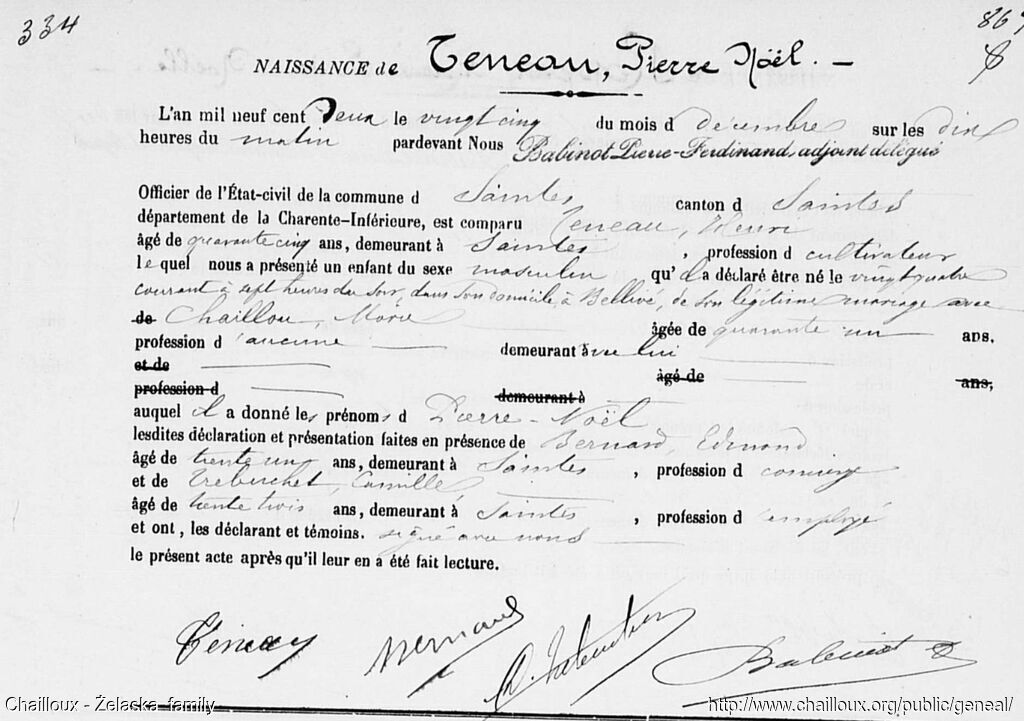 334
867
NAISSANCE de Teneau, Pierre Noël. —
L'an mil neuf cent Deux le vingt cinq du mois d décembre sur les dix
heures du matin pardevant Nous Babinot Pierre-Ferdinand, adjoint délégué
Officier de l'État-civil de la commune d Saintes canton d Saintes
département de la Charente-Inférieure, est comparu Teneau, Henri
âgé de quarante cinq ans, demeurant à Saintes, profession d cultivateur
lequel nous a présenté un enfant du sexe masculin qu'il a déclaré être né le vingt quatre
courant à sept heures du soir, dans son domicile, à Bellivé, de son légitime mariage avec
de Chaillou, Marie âgée de quarante un ans.
profession d'aucune demeurant avec lui
et de âgé de
profession d demeurant à ans,
auquel il a donné les prénoms d Pierre-Noël
lesdites déclaration et présentation faites en présence de Bernard, Edmond
âgé de trente un ans, demeurant à Saintes, profession d concierge
et de Trebuchet, Camille
âgé de trente trois ans, demeurant à Saintes, profession d'employé
et ont, les déclarant et témoins. signé avec nous
le présent acte après qu'il leur en a été fait lecture.
Teneau Bernard Babinot
Chailloux - Żelaska family http://www.chailloux.org/public/geneal/